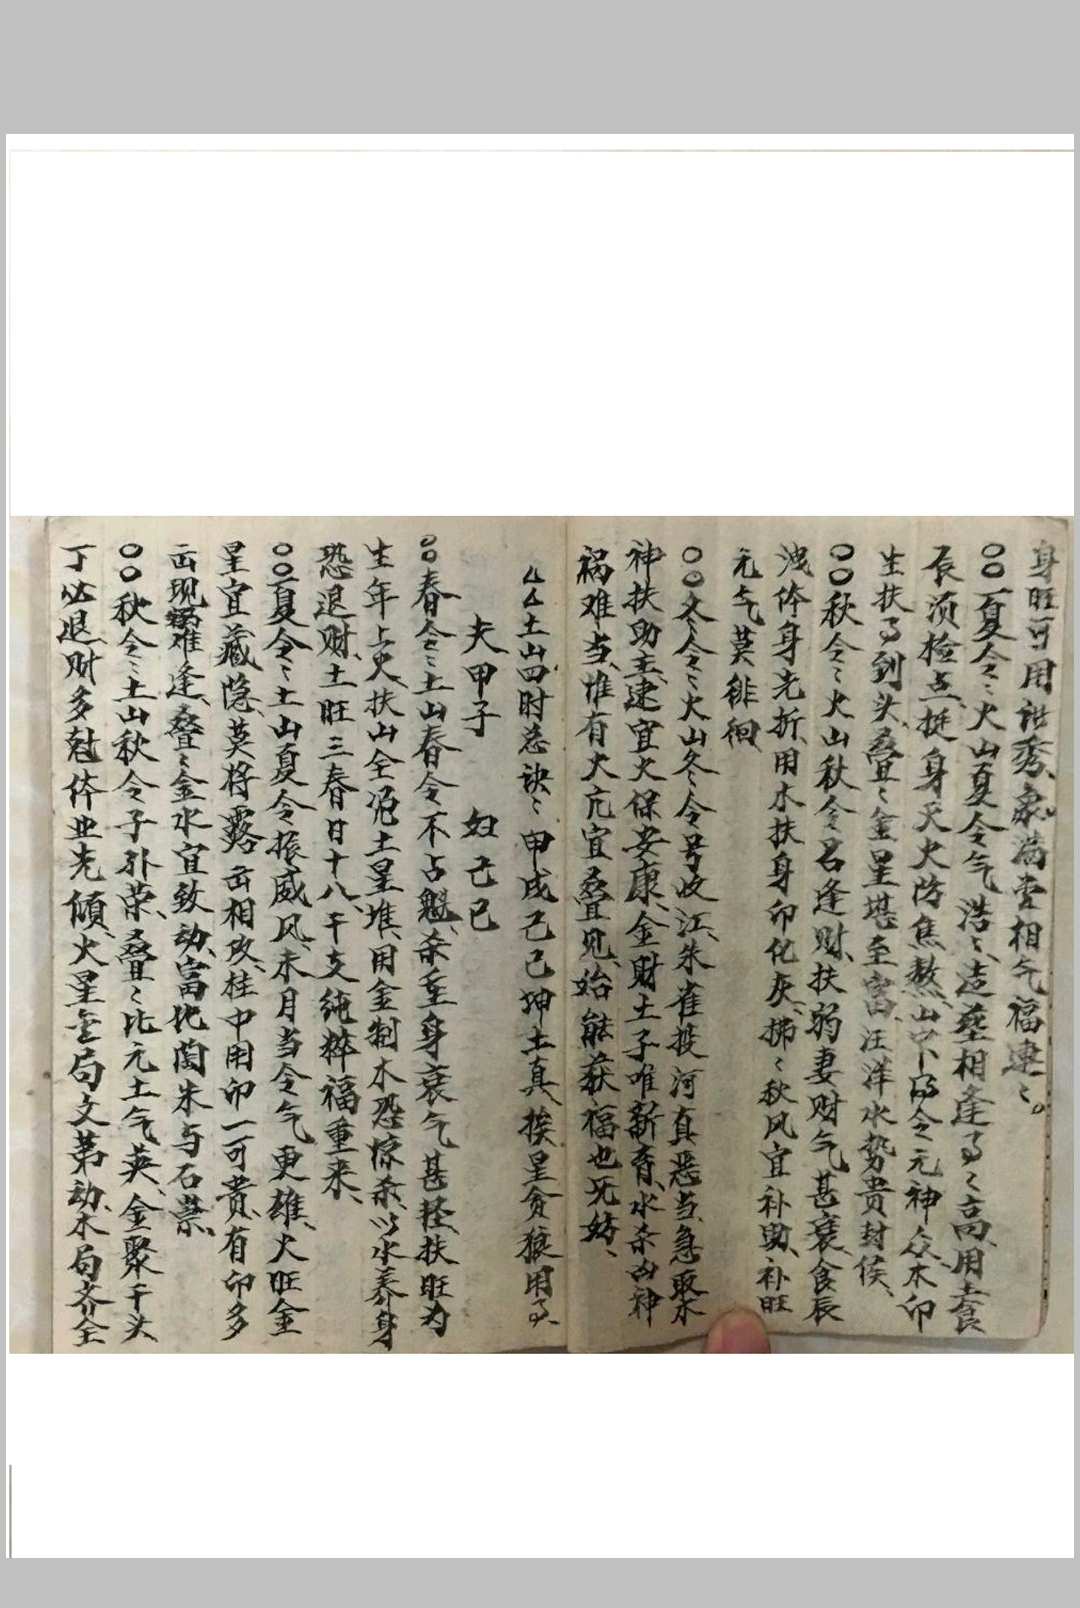 身旺可用泄秀象满壹相气福连〻。
〇〇夏令〻火山夏令气浩〻造葬相逢了〻高、用土食
辰须检点、挺身灭火防焦熬、山中令元神众、木印
生扶了到头、叠〻金星堪至富、汪洋水势贵封侯、
〇〇秋令〻火山秋令名逢财、扶弱妻财气甚衰、食辰
洩体身先折、用木扶身印化灰、拂〻秋风宜补助、补旺
元气莫徘徊、
〇〇冬令〻火山冬令号收江、朱雀投河真恶当、急取木
神扶助主、建宜火保安康、金财土子唯新育、水杀凶神
祸难当、堆有火亢宜叠见、始能获福也无妨、
厶厶土山四时总诀〻申戌己己坤土真、挨星贪狼用了、
夫甲子 妇己巳
〇〇春令〻土山春令不占魁、杀重身衰气甚轻、扶旺为
生年上火、扶山全凭土星堆、用金制木恐惊杀、以水养身
恐退财、土旺三春日十八、干支纯粹福重来、
〇〇夏令〻土山夏令振威风、未月当令气更雄、火旺金
星宜藏隐、莫将露面相攻、柱中用印一可贵、有印多
面现难逢、叠〻金水宜致动、富比陶朱与石崇、
〇〇秋令〻土山秋令子外荣、叠〻比元土气英、金聚干头
丁必退、财多尅体业先倾、火星全局文第动、木局齐全